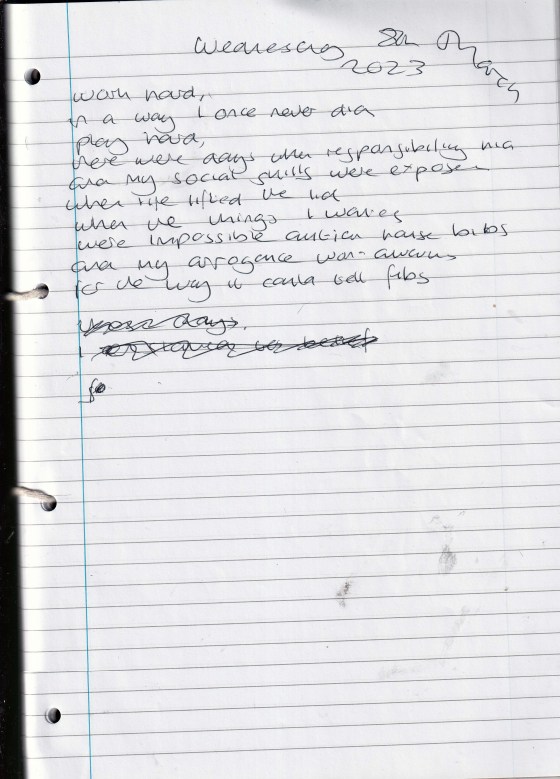 Wednesday 8th March
2023
work hard,
in a way I once never did
play hard,
there were days when responsibility hid
and my social skills were exposed
when life lifted the lid
when the things I wanted
were impossible auction house bids
and my arrogance won awards
for the way it could tell fibs
those days.
I
so